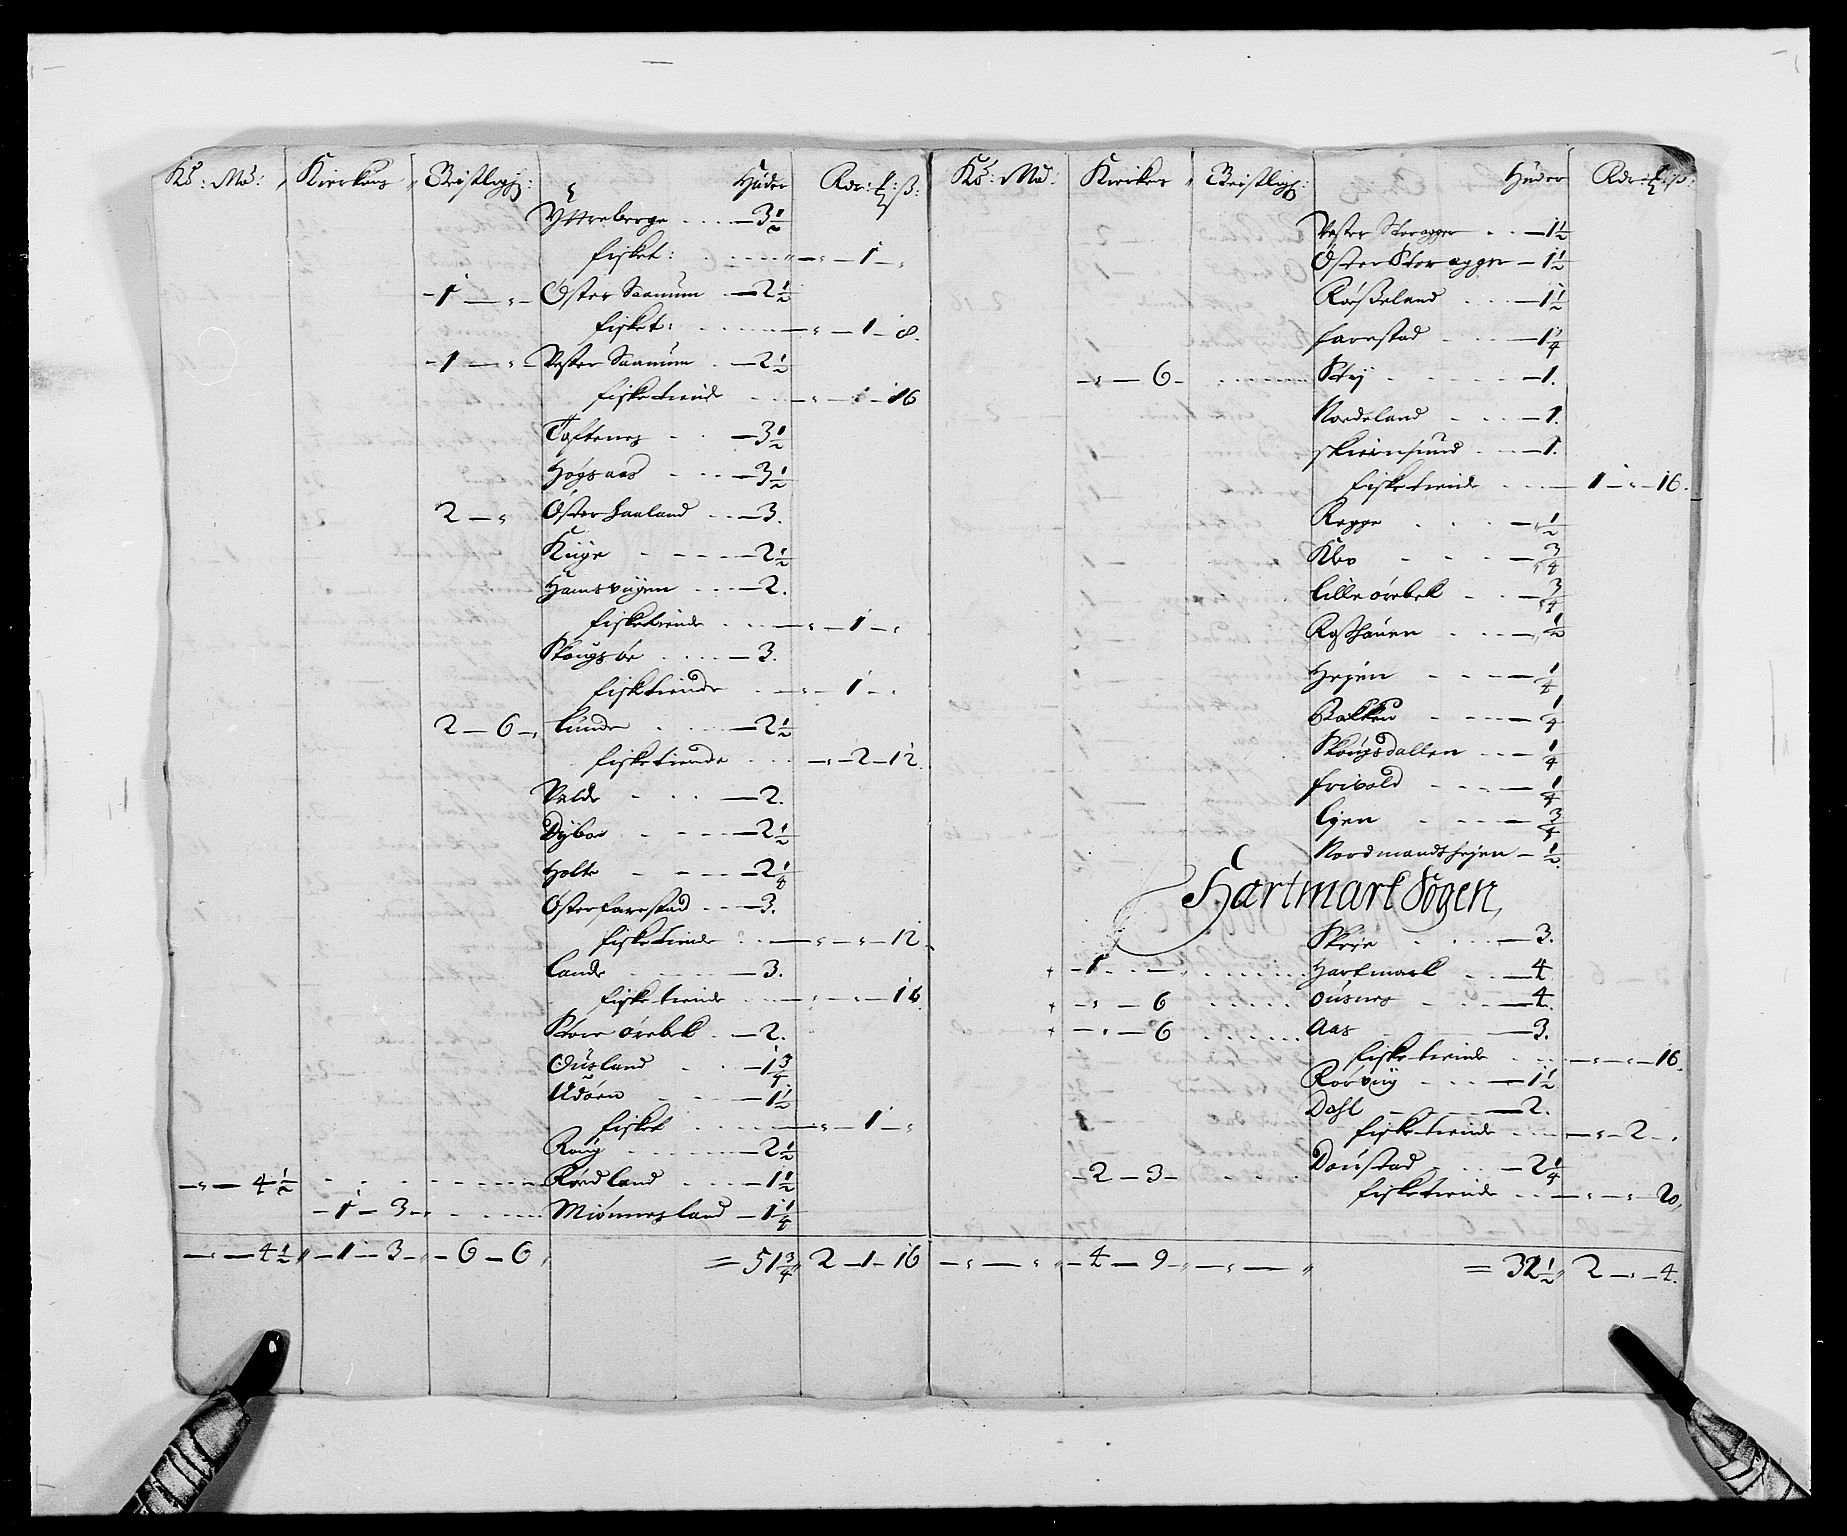 Kö: Ma: Kirkens Geistligg: Huder Rdr: ß:
Yttreberge - - - - 3 1/2
fisket: - - - - " - 1 - "
- 1 - " - Öster Saanum - 2 1/2
fisket: - - - - " - 1 - 8.
- 1 - " - Vester Saanum - 2 1/2
fisketiende - - - " - 1 - 16
Toftenes - - - 3 1/2
Høgsaas - - - 3 1/2
2 - " Öster haaland - - 3.
Kuge - - - - 2 1/2
Hamsvigen - - - 2.
fisketiende - - - " - 1 - "
Skougsøe - - - - 3.
fisketiende - - " - 1 - "
2 - 6 - " Lunde - - - 2 1/2
fisketiende - - - " - 2 - 12.
Valde - - - 2.
Dyboe - - - 2 1/2
Holte - - - - 2 1/4
Österfarestad - - 3.
fisketiende - - - " - " - 12.
Lande - - - 3.
fisketiende - - - " - " - 16
Store örebek - 2.
Ousland - - - 1 3/4
Udöen - - - 1 1/2
fisket - - - " - 1 - "
Roug - - - 2 1/2
- " - 4 1/2 - - - - Rødland - - - 1 1/2
- 1 - 3 - " - - - Miønnesland - 1 1/4
- " - 4 1/2 " - 1 - 3 - " - 6 - 6 " = 51 3/4 " 2 - 1 - 16
Kö: Ma: Kircker Geistligg: Huder Rdr: ß:
Vester Storagger - - 1 1/2
Öster Storagger - 1 1/2
Røsseland - - - 1 1/2
farestad - - - 1 1/4
- " - 6 - - - - Støj - - - 1.
Nordeland - - - 1.
skiernsund - - - 1.
fisketiende - - - 1 - " - 16.
Regge - - - - " 1/2
Klev - - - - " 3/4
Lille örebek - - - " 3/4
Rosshauen - - - " 1/2
Hejen - - - - 1/4
Bakken - - - - 1/4
Skougsdallen - - - 1/4
frivold - - - - 1/4
Ejen - - - - 3/4
Nordmandshejen - 1/2.
Hartmark Sogen,
Skeye - - - 3.
+ - 1 - " - - - Hartmark - - - 4
+ - " - 6 - - - Ousnes - - - 4.
+ - " - 6 - - - Aas - - - 3.
fisketiende - - - " - " - 16.
Rørvig - - - 1 1/2
Dahl - - - 2.
fisketiende - - - " - 2 - "
- 2 - 3 - - - Doustad - - - 2 1/4
fisketiende - - - " - " - 20,
- " - " - " - 4 - 9 " - " - " = 32 1/2 " 2 - " - 4.